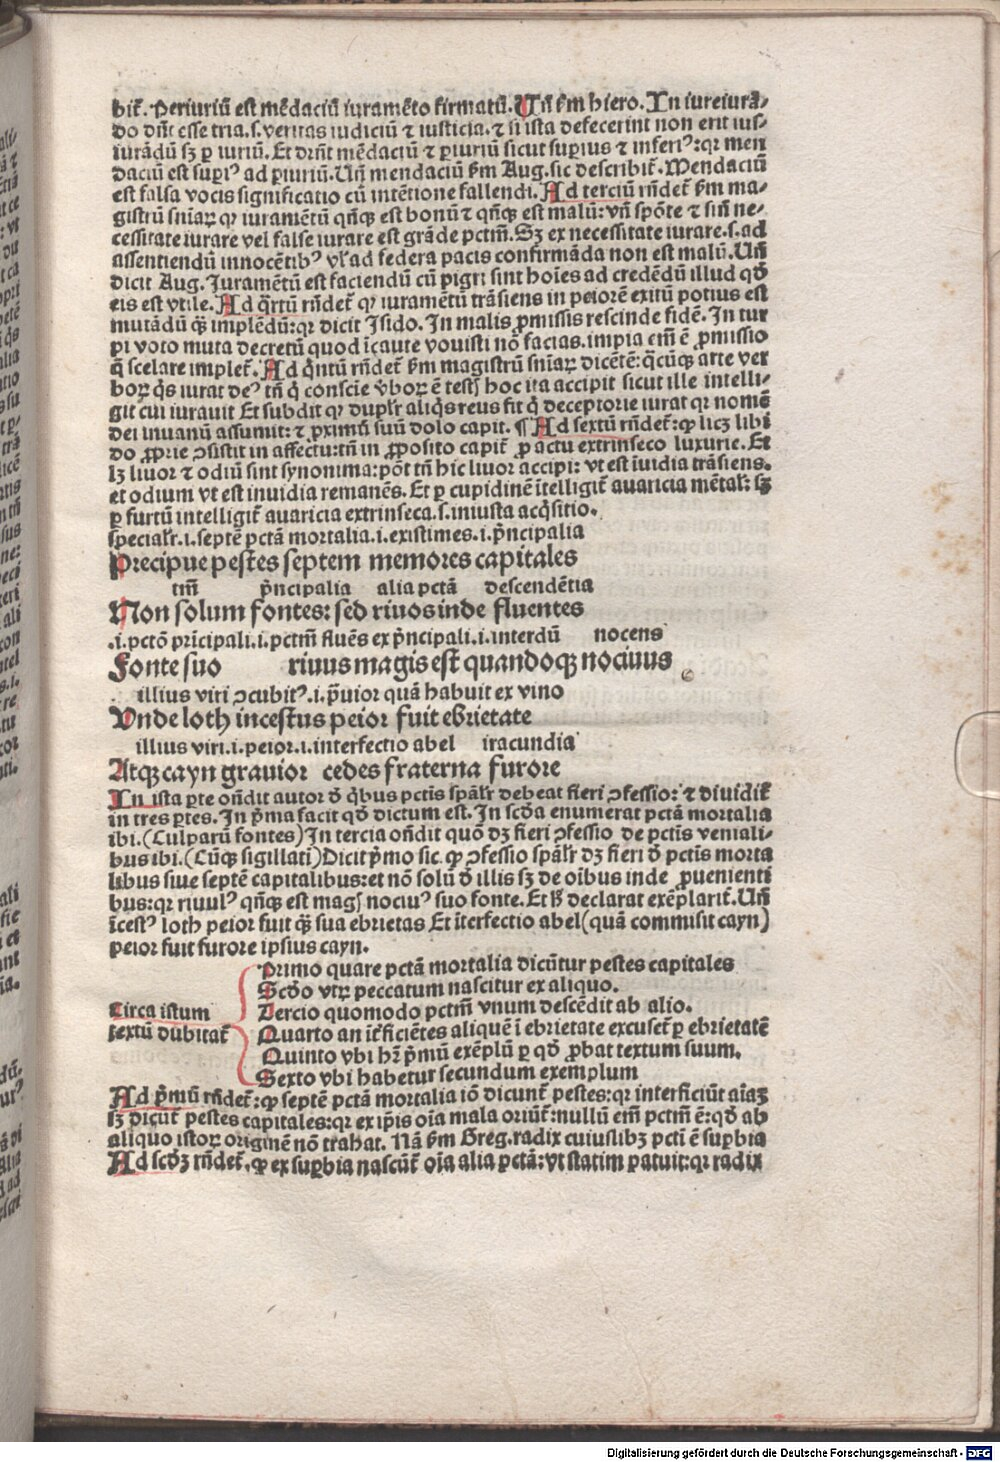 bit̄. Periuriū est mēdaciū iuramēto firmatū. Uñ ẜm hiero. In iureiurā-
do dn̄t esse tria. s. veritas iudiciū ⁊ iusticia. ⁊ si ista defecerint non erit ius-
iurādū sꝫ ꝑ iuriū. Et dr̄nt mēdaciū ⁊ ꝑiuriū sicut suꝑius ⁊ inferiꝰ: qꝛ men
daciū est suꝑiꝰ ad ꝑiuriū. Uñ mendaciū ẜm Aug. sic describit̄. Mendaciū
est falsa vocis significatio cū intētione fallendi. Ad terciū rn̄det̄ ẜm ma-
gistrū sniaꝝ qꝛ iuramētū qn̄qꝫ est bonū ⁊ qn̄qꝫ est malū: vñ spōte ⁊ sin̄ ne-
cessitate iurare vel false iurare est grāde pctm̄. Sꝫ ex necessitate iurare. s. ad
assentiendū innocētibꝰ vl̓ ad federa pacis confirmāda non est malū. Uñ
dicit Aug. Iuramētū est faciendū cū pigri sint hoīes ad credēdū illud qď
eis est vtile. Ad q̄rtū rn̄det̄ qꝛ iuramētū trāsiens in peiorē exitū potius est
mutādū q̄ꝫ implēdū: qꝛ dicit Isido. In malis ꝓmissis rescinde fidē. In tur
pi voto muta decretū quod īcaute vouisti nō facias. impia em̄ ē ꝓmissio
q̄ scelare implet̄. Ad q̄ntū rn̄det̄ ẜm magistrū sniaꝝ dicētē: q̄cūqꝫ arte ver
boꝝ q̄s iurat deꝰ tn̄ q̄ conscie v̄boꝝ ē testꝭ hoc ita accipit sicut ille intelli-
git cui iurauit Et subdit qꝛ dupl̓r aliq̄s reus fit q̄ deceptorie iurat qꝛ nomē
dei inuanū assumit: ⁊ ꝓximū suū dolo capit. ¶ Ad sextū rn̄det̄: ꝙ licꝫ libi
do ꝓprie ꝯsistit in affectu: tn̄ in ꝓposito capit̄ ꝓ actu extrinseco luxurie. Et
lꝫ liuor ⁊ odiū sint synonima: pōt tn̄ hic liuor accipi: vt est īuidia trāsiens.
et odium vt est inuidia remanēs. Et ꝑ cupidinē ītelligit̄ auaricia mētal̓: sꝫ
ꝑ furtū intelligit̄ auaricia extrinseca. s. iniusta acq̄sitio.
special̓r. i. septē pctā mortalia. i. existimes. i. p̄ncipalia
Precipue pestes septem memores capitales
tm̄ p̄ncipalia alia pctā descendētia
Non solum fontes: sed riuos inde fluentes
.i. pctō pricipali. i. pctm̄ fluēs ex p̄ncipali. i. interdū nocens
Fonte suo riuus magis est quandoqꝫ nociuus
illius viri ꝯcubitꝰ. i. p̄uior quā habuit ex vino
Unde loth incestus peior fuit ebrietate
illius viri. i. peior. i. interfectio abel iracundia
Atqꝫ cayn grauior cedes fraterna furore
In ista ꝑte on̄dit autor ď q̄bus pctīs spāl̓r debeat fieri ꝯfessio: ⁊ diuidit̄
in tres ꝑtes. In p̄ma facit qď dictum est. In scďa enumerat pctā mortalia
ibi. (Culparū fontes) In tercia on̄dit quō dꝫ fieri ꝯfessio de pctīs veniali-
bus ibi. (Cūqꝫ sigillati) Dicit p̄mo sic. ꝙ ꝯfessio spāl̓r dꝫ fieri ď pctīs morta
libus siue septē capitalibus: et nō solū ď illis sꝫ de oībus inde ꝓuenienti
bus: qꝛ riuulꝰ qn̄qꝫ est magꝭ nociuꝰ suo fonte. Et ḣ declarat exēplarit̄. Uñ
īcestꝰ loth peior fuit q̄ꝫ sua ebrietas Et īterfectio abel (quā commisit cayn)
peior fuit furore ipsius cayn.
Circa istum
textū dubitat̄
Primo quare pctā mortalia dicūtur pestes capitales
Scďo vtꝝ peccatum nascitur ex aliquo.
Tercio quomodo pctm̄ vnum descēdit ab alio.
Quarto an īt̄ficiētes aliquē ī ebrietate excuset̄ ꝑ ebrietatē
Quinto vbi hr̄ p̄mū exēplū ꝑ qď ꝓbat textum suum.
Sexto vbi habetur secundum exemplum
Ad p̄mū rn̄det̄: ꝙ septē pctā mortalia iō dicunt̄ pestes: qꝛ interficiūt aīaꝫ
sꝫ dicūt̄ pestes capitales: qꝛ ex ip̄is oīa mala oriūt̄: nullū em̄ pctm̄ ē: qď ab
aliquo istoꝝ originē nō trahat. Nā ẜm Greg. radix cuiuslibꝫ pcti ē suꝑbia
Ad scďꝫ rn̄det̄. ꝙ ex suꝑbia nascūt̄ oīa alia pctā: vt statim ꝑatuit: qꝛ radix
Digitalisierung gefördert durch die Deutsche Forschungsgemeinschaft - DFG